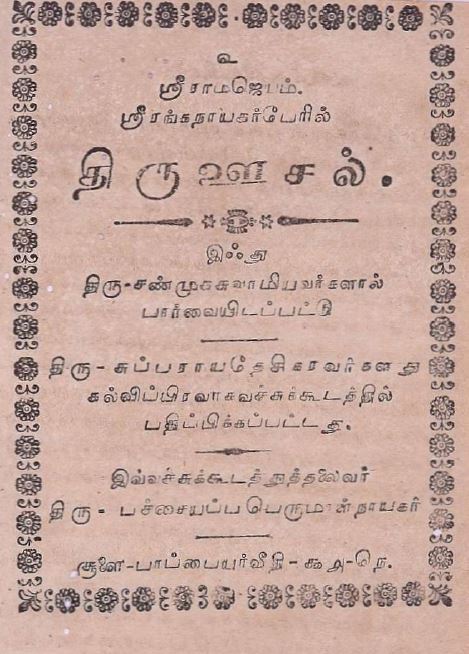 உ
ஸ்ரீராமஜெயம்.
ஸ்ரீரங்கநாயகர்பேரில்
திரு ஊசல்.
இஃது
திரு-சண்முகசுவாமியவர்களால்
பார்வையிடப்பட்டு
திரு-சுப்பராயதேசிகரவர்களது
கல்விப்பிரவாகவச்சுக்கூடத்தில்
பதிப்பிக்கப்பட்டது.
இவ்வச்சுக்கூடத்துத்தலைவர்
திரு-பச்சையப்பபெருமாள்நாயகர்
சூளை-பாப்பையர்வீதி-௬௮-நெ.